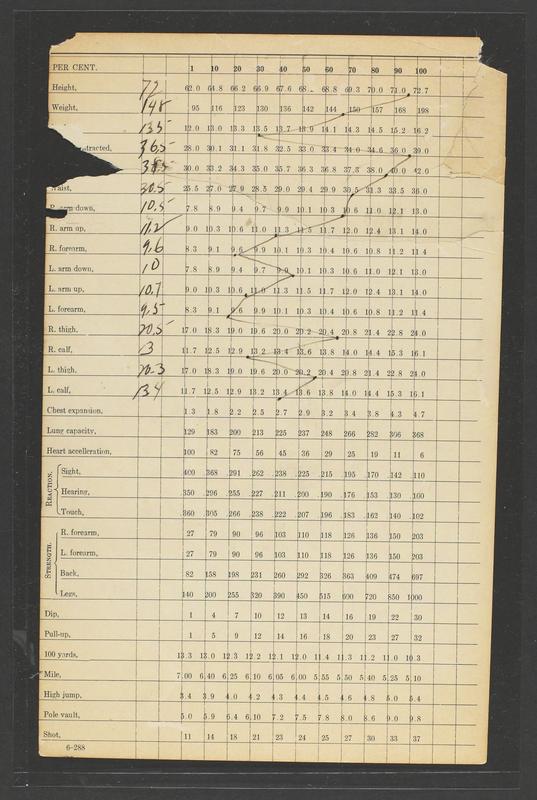 PER CENT. 1 10 20 30 40 50 60 70 80 90 100
Height, 72 62.0 64.8 66.2 66.9 67.6 68. 68.8 69.3 70.0 71.0 72.7
Weight, 148 95 116 123 130 136 142 144 150 157 168 198
13.5 12.0 13.0 13.3 13.5 13.7 13.9 14.1 14.3 14.5 15.2 16.2
tracted, 36.5 28.0 30.1 31.1 31.8 32.5 33.0 33.4 34.0 34.6 36.0 39.0
38.5 30.0 33.2 34.3 35.0 35.7 36.3 36.8 37.3 38.0 40.0 42.0
Waist, 30.5 25.5 27.0 27.9 28.5 29.0 29.4 29.9 30.5 31.3 33.5 36.0
R. arm down, 10.5 7.8 8.9 9.4 9.7 9.9 10.1 10.3 10.6 11.0 12.1 13.0
R. arm up, 11.2 9.0 10.3 10.6 11.0 11.3 11.5 11.7 12.0 12.4 13.1 14.0
R. forearm, 9.6 8.3 9.1 9.6 9.9 10.1 10.3 10.4 10.6 10.8 11.2 11.4
L. arm down, 10 7.8 8.9 9.4 9.7 9.9 10.1 10.3 10.6 11.0 12.1 13.0
L. arm up, 10.7 9.0 10.3 10.6 11.0 11.3 11.5 11.7 12.0 12.4 13.1 14.0
L. forearm, 9.5 8.3 9.1 9.6 9.9 10.1 10.3 10.4 10.6 10.8 11.2 11.4
R. thigh, 20.5 17.0 18.3 19.0 19.6 20.0 20.2 20.4 20.8 21.4 22.8 24.0
R. calf, 13 11.7 12.5 12.9 13.2 13.4 13.6 13.8 14.0 14.4 15.3 16.1
L. thigh, 20.3 17.0 18.3 19.0 19.6 20.0 20.2 20.4 20.8 21.4 22.8 24.0
L. calf, 13.4 11.7 12.5 12.9 13.2 13.4 13.6 13.8 14.0 14.4 15.3 16.1
Chest expansion, 1.3 1.8 2.2 2.5 2.7 2.9 3.2 3.4 3.8 4.3 4.7
Lung capacity, 129 183 200 213 225 237 248 266 282 306 368
Heart accelleration, 100 82 75 56 45 36 29 25 19 11 6
REACTION.
Sight, 400 .368 .291 .262 .238 .225 .215 .195 .170 .142 .110
Hearing, .350 .296 .255 .227 .211 .200 .190 .176 .153 .130 .100
Touch, .360 .305 .266 .238 .222 .207 .196 .183 .162 .140 .102
STRENGTH.
R. forearm, 27 79 90 96 103 110 118 126 136 150 203
L. forearm, 27 79 90 96 103 110 118 126 136 150 203
Back, 82 158 198 231 260 292 326 363 409 474 697
Legs, 140 200 255 320 390 450 515 600 720 850 1000
Dip, 1 4 7 10 12 13 14 16 19 22 30
Pull-up, 1 5 9 12 14 16 18 20 23 27 32
100 yards, 13.3 13.0 12.3 12.2 12.1 12.0 11.4 11.3 11.2 11.0 10.3
Mile, 7.00 6.40 6.25 6.10 6.05 6.00 5.55 5.50 5.40 5.25 5.10
High jump, 3.4 3.9 4.0 4.2 4.3 4.4 4.5 4.6 4.8 5.0 5.4
Pole vault, 5.0 5.9 6.4 6.10 7.2 7.5 7.8 8.0 8.6 9.0 9.8
Shot, 11 14 18 21 23 24 25 27 30 33 37
6-288